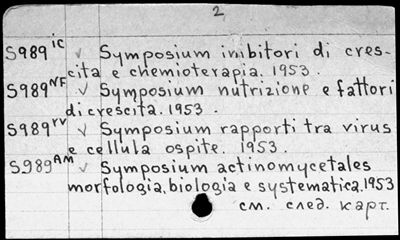 2
S989ic √ Symposium inibitori di cres-
cita e chemioterapia. 1953.
S989NF √ Symposium nutrizione e fattori
di crescita. 1953.
S989rv √ Symposium rapporti tra virus
e cellula ospite. 1953.
S989AM √ Symposium actinomycetales
morfologia, biologia e systematica. 1953
см. след. карт.